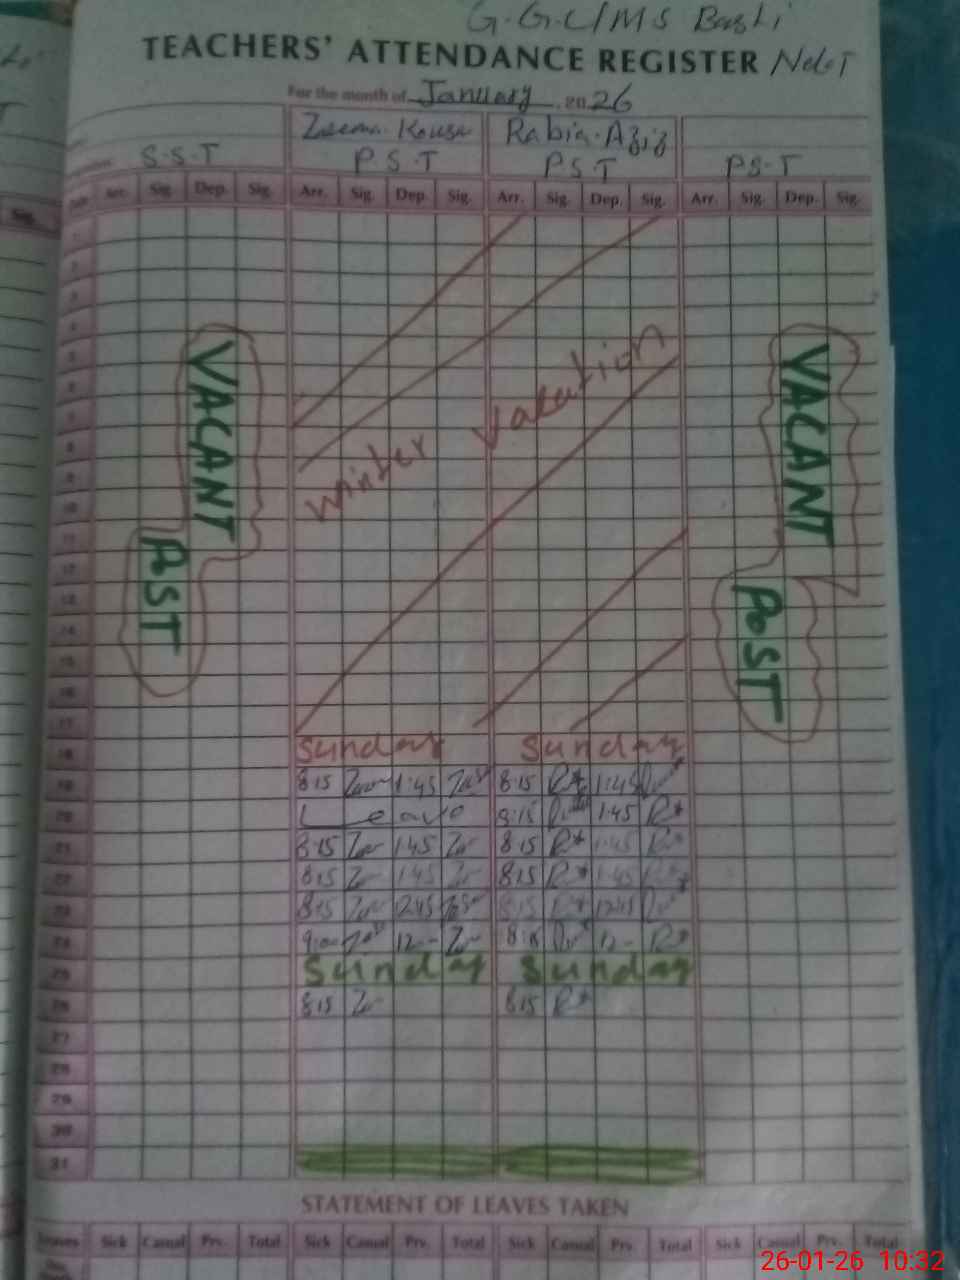 G.G.C/M S Bashi
TEACHERS' ATTENDANCE REGISTER
For the month of January 2026
Rabia Aziz
S.S.T P.S.T P.S.T P.S.T
Arr. Sig. Dep. Sig. Arr. Sig. Dep. Sig. Arr. Sig. Dep. Sig. Arr. Sig. Dep. Sig.
1
2
3
4
5
6
7
8
9
10
11
12
13
14
15
16
17
VACANT POST
winter vacation
VACANT POST
18 Sunday Sunday
19 8:15 1:45 8:15 1:45
20 Leave 8:15 1:45
21 8:15 1:45 8:15 1:45
22 8:15 1:45 8:15 1:45
23 8:15 12:45 8:15 12:45
24 9:00 12- 8:15 12-
25 Sunday Sunday
26 8:15 8:15
27
28
29
30
31
STATEMENT OF LEAVES TAKEN
Leaves Sick Casual Prv. Total Sick Casual Prv. Total Sick Casual Prv. Total Sick Casual Prv. Total
26-01-26 10:32